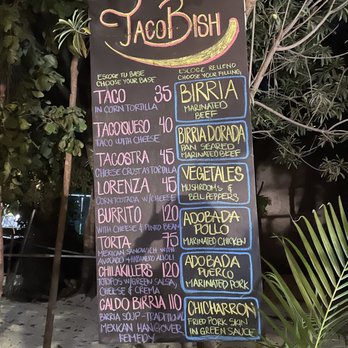 TACO BISH
ESCOGE TU BASE
CHOOSE YOUR BASE
TACO 35
IN CORN TORTILLA
TACOQUESO 40
TACO WITH CHEESE
TACOSTRA 45
CHEESE CRUST AS TORTILLA
LORENZA 45
CORN TOSTADA W/CHEESE
BURRITO 120
WITH CHEESE & PINTO BEANS
TORTA 75
MEXICAN SANDWICH WITH
AVOCADO + HABANERO ALIOLI
CHILAKILLERS 120
TOTOPOS W/GREEN SALSA,
CHEESE & CREMA
CALDO BIRRIA 110
BIRRIA SOUP - TRADITIONAL
MEXICAN HANGOVER
REMEDY
ESCOGE RELLENO
CHOOSE YOUR FILLING
BIRRIA
MARINATED
BEEF
BIRRIA DORADA
PAN SEARED
MARINATED BEEF
VEGETALES
MUSHROOMS &
BELL PEPPERS
ADOBADA
POLLO
MARINATED CHICKEN
ADOBADA
PUERCO
MARINATED PORK
CHICHARRON
FRIED PORK SKIN
IN GREEN SAUCE